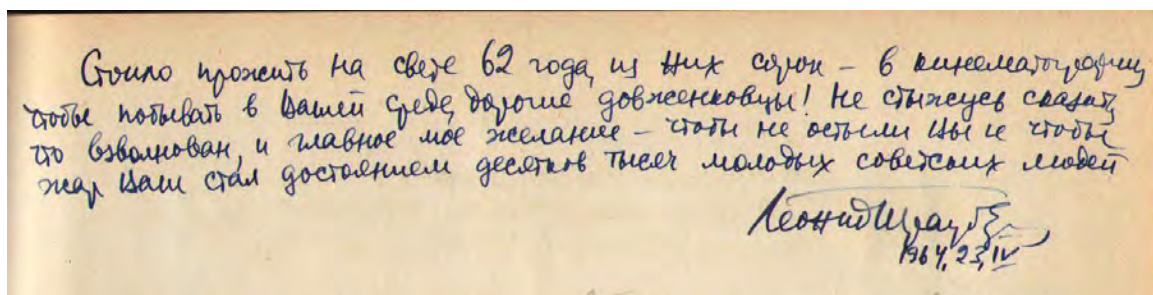 Стоило прожить на свете 62 года, из них сорок – в кинематографии,
чтобы побывать в Вашей среде, дорогие довженковцы! Не стыжусь сказать,
что взволнован, и главное мое желание – чтобы не остыли Вы и чтобы
жар Ваш стал достоянием десятков тысяч молодых советских людей
Леонид Трауберг
1964, 23, IV